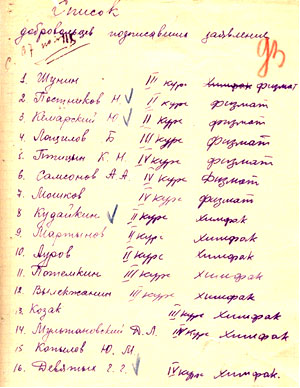 Список
добровольцев подписавших заявление
1. Шунин III курс физмат
2. Постников Н. II курс физмат
3. Комарский Ю II курс физмат
4. Лощилов Б III курс физмат
5. Птицын К. Н. IV курс физмат
6. Самсонов А. А. IV курс Физмат
7. Мошков IV курс физмат
8. Кудайкин II курс Химфак
9. Мартынов II курс Химфак
10. Ауров II курс Химфак
11. Потемкин III курс Химфак
12. Вылежжанин III курс Химфак
13. Козак III курс Химфак
14. Мультановский Д. Л. IV курс Химфак
15. Копылов Ю. М
16. Девятых Г. Г. IV курс Химфак.